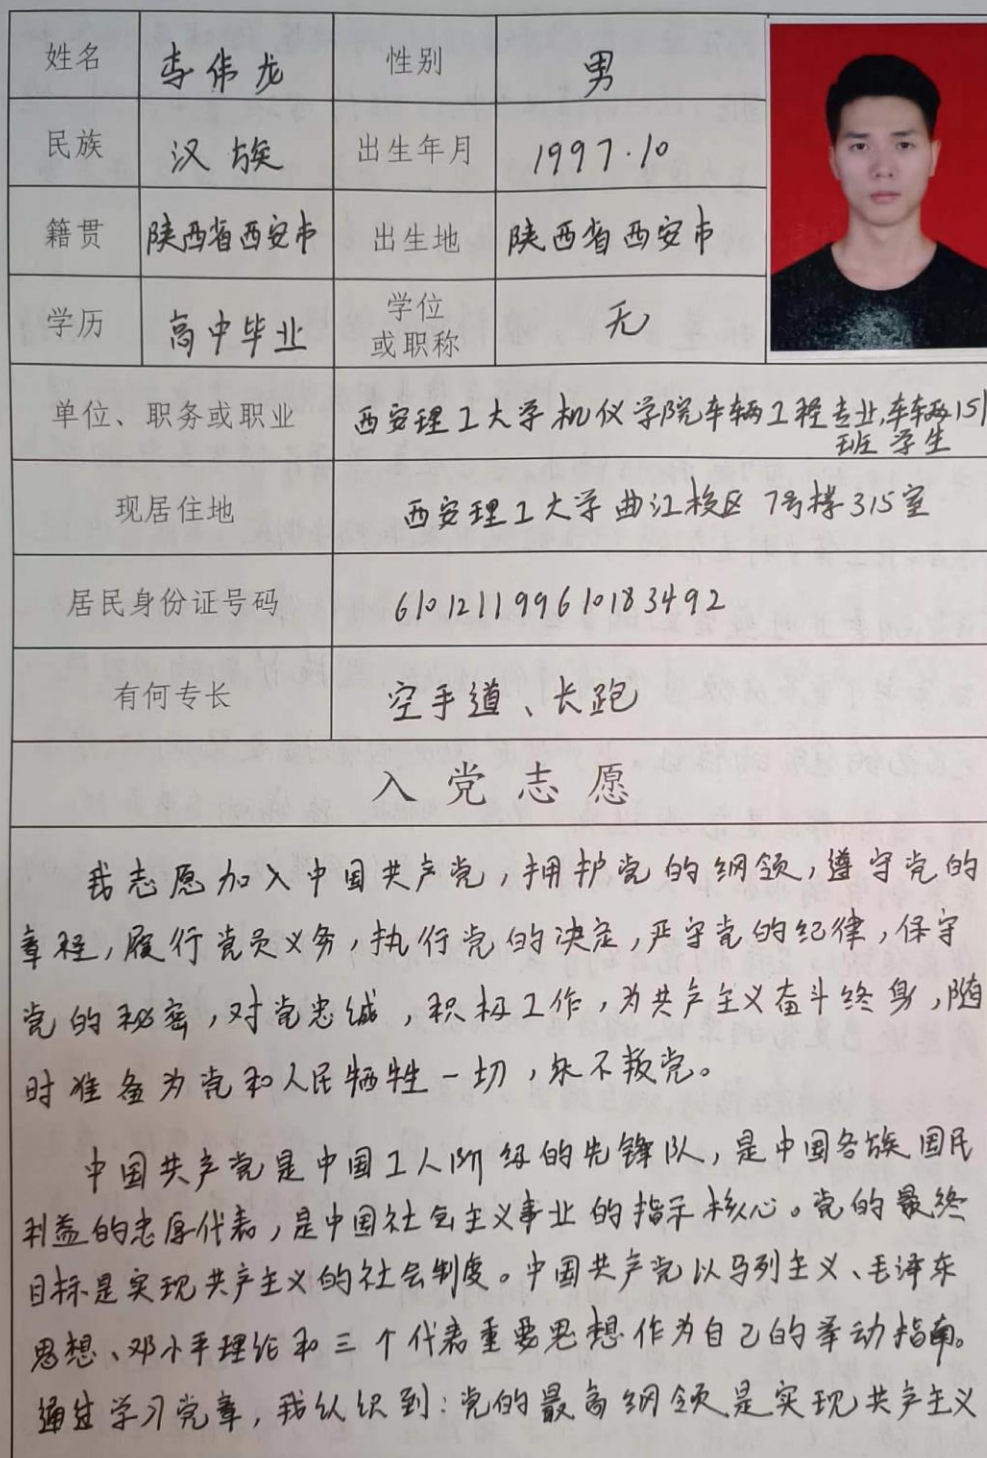 姓名 李伟龙 性别 男
民族 汉族 出生年月 1997.10
籍贯 陕西省西安市 出生地 陕西省西安市
学历 高中毕业 学位或职称 无
单位、职务或职业 西安理工大学机仪学院车辆工程专业,车辆151
班学生
现居住地 西安理工大学曲江校区 7号楼315室
居民身份证号码 610121199610183492
有何专长 空手道、长跑
入党志愿
我志愿加入中国共产党,拥护党的纲领,遵守党的
章程,履行党员义务,执行党的决定,严守党的纪律,保守
党的秘密,对党忠诚,积极工作,为共产主义奋斗终身,随
时准备为党和人民牺牲一切,永不叛党。
中国共产党是中国工人阶级的先锋队,是中国各族国民
利益的忠厚代表,是中国社会主义事业的指示核心。党的最终
目标是实现共产主义的社会制度。中国共产党以马列主义、毛泽东
思想、邓小平理论和三个代表重要思想作为自己的举动指南。
通过学习党章,我认识到:党的最高纲领是实现共产主义